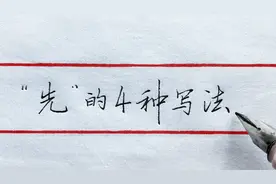 “先”的4种写法